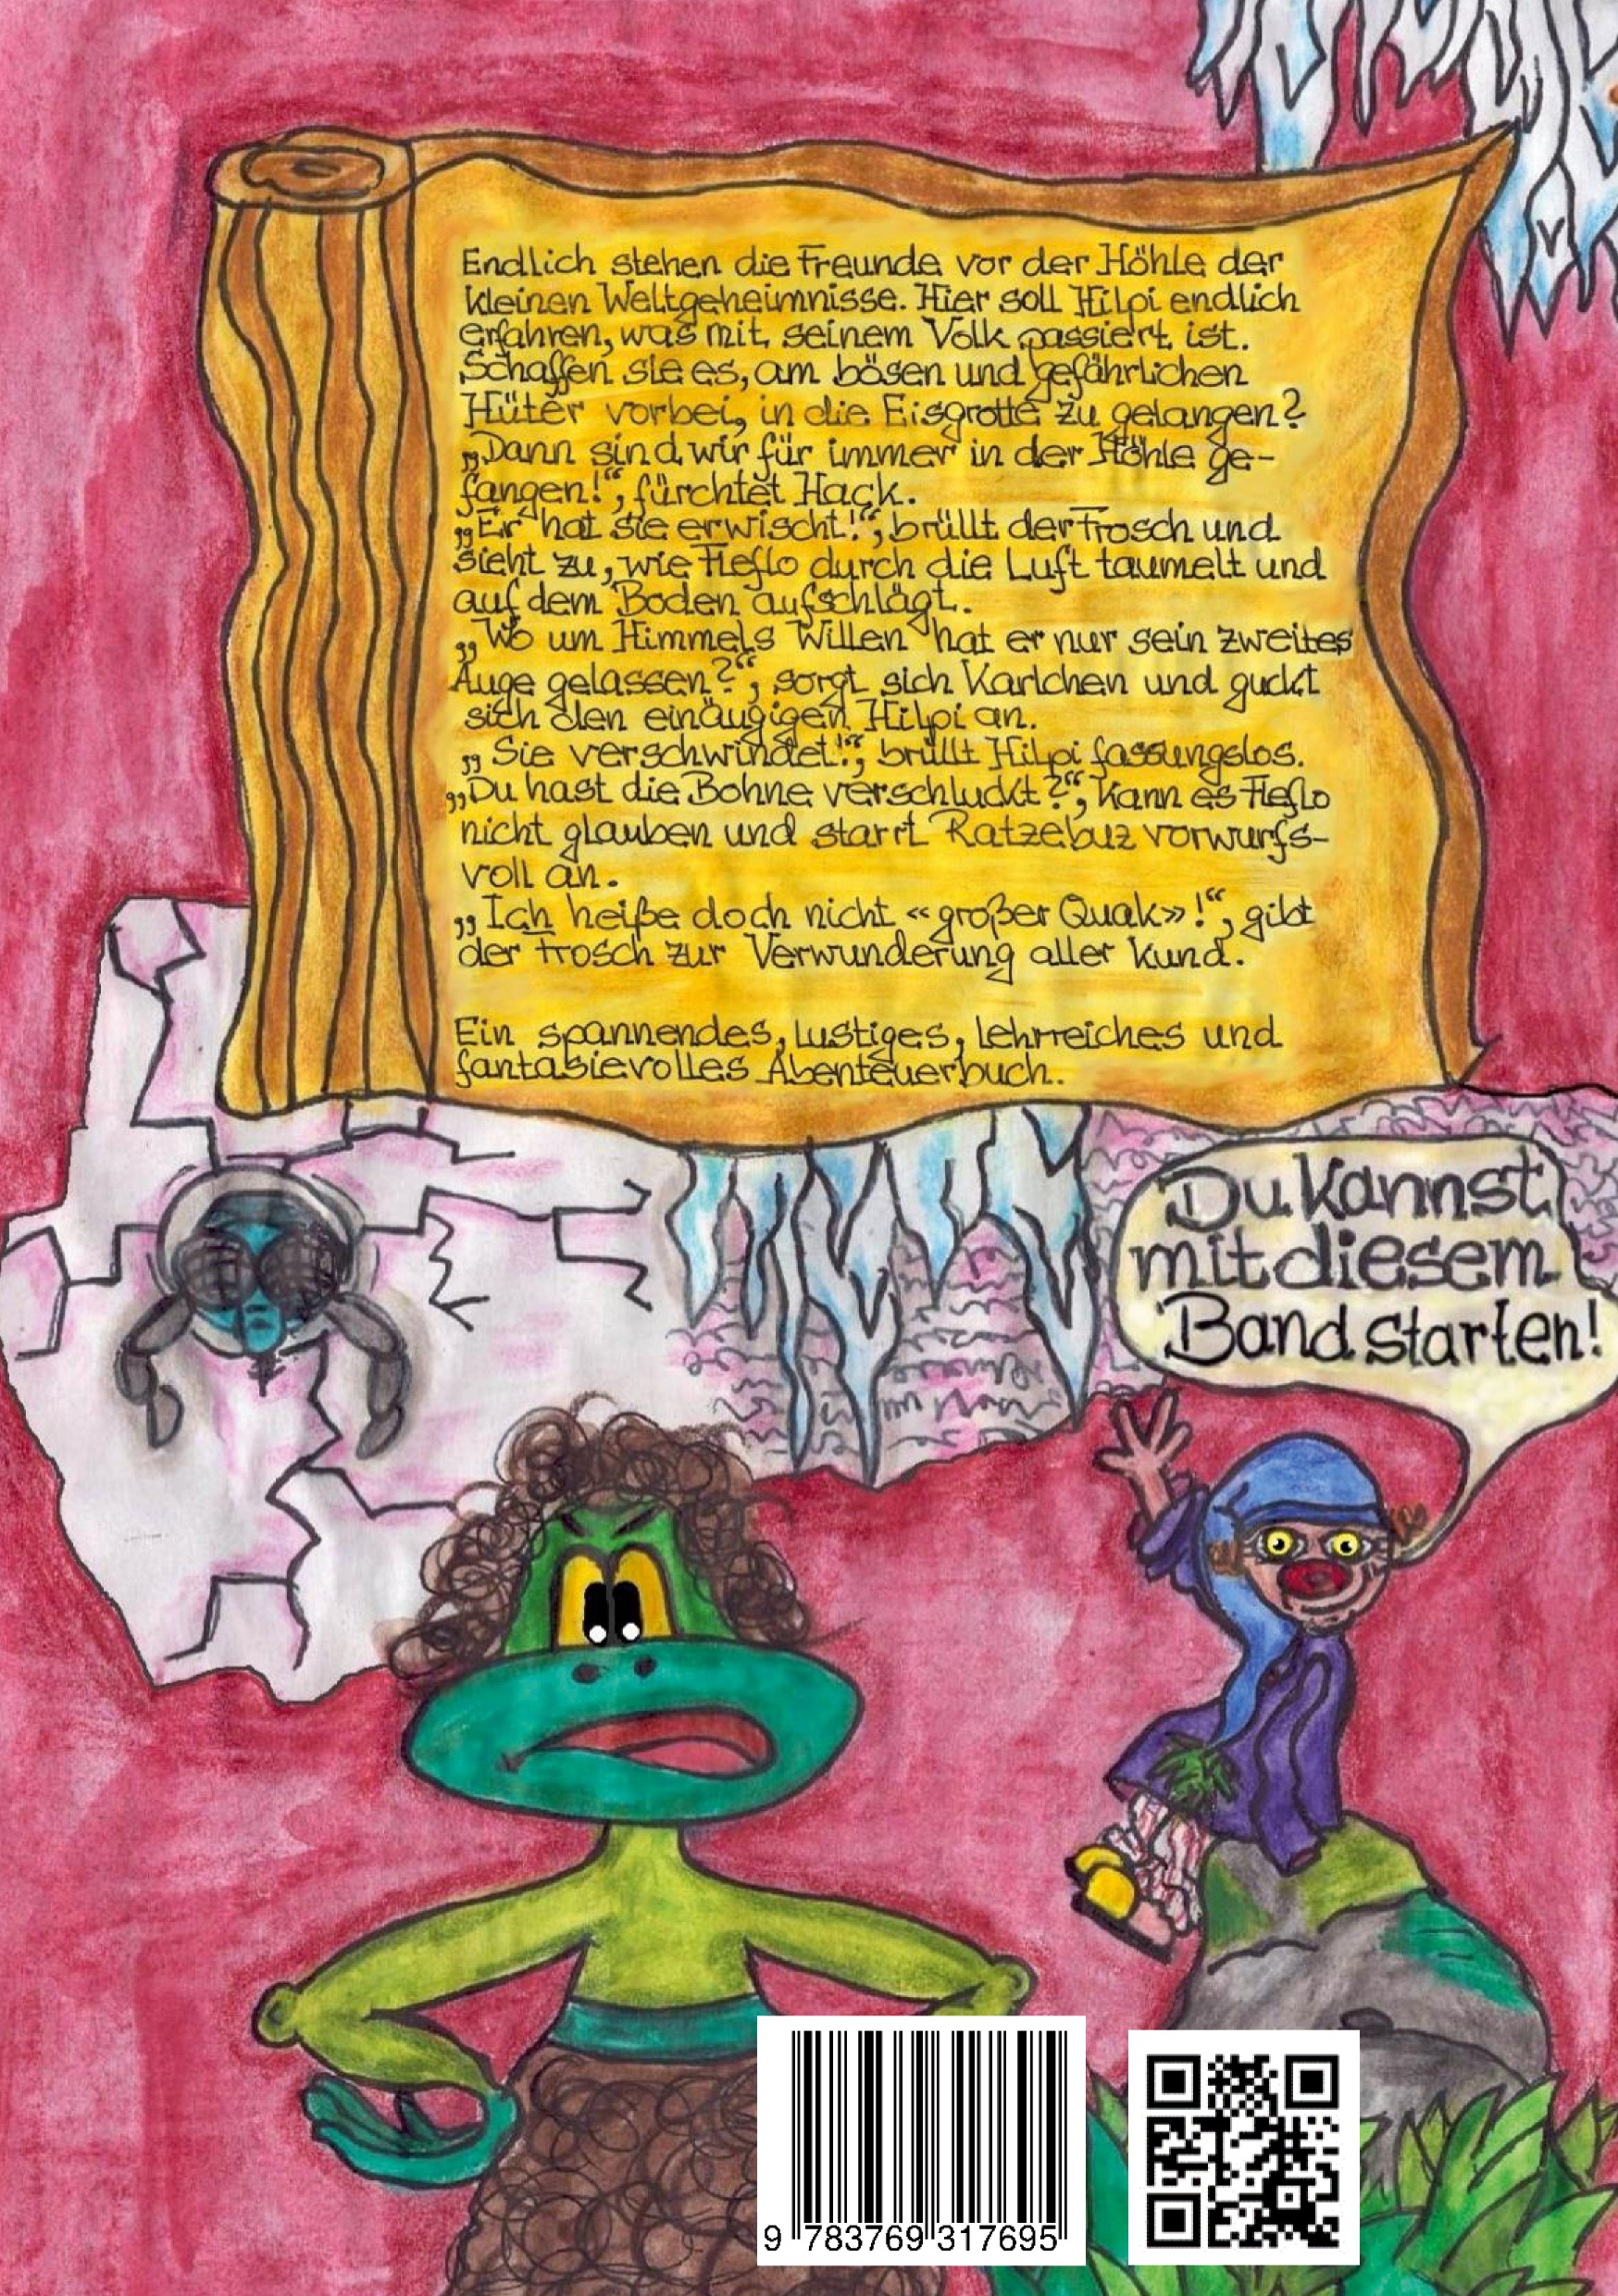 Endlich stehen die Freunde vor der Höhle der
kleinen Weltgeheimnisse. Hier soll Hilpi endlich
erfahren, was mit seinem Volk passiert ist.
Schaffen sie es, am bösen und gefährlichen
Hüter vorbei, in die Eisgrotte zu gelangen?
„Dann sind wir für immer in der Höhle ge-
fangen!“, fürchtet Hack.
„Er hat sie erwischt!“, brüllt der Frosch und
sieht zu, wie Fleflo durch die Luft taumelt und
auf dem Boden aufschlägt.
„Wo um Himmels Willen hat er nur sein zweites
Auge gelassen?“, sorgt sich Karlchen und guckt
sich den einäugigen Hilpi an.
„Sie verschwindet!“, brüllt Hilpi fassungslos.
„Du hast die Bohne verschluckt?“, kann es Fleflo
nicht glauben und starrt Ratzebuz vorwurfs-
voll an.
„Ich heiße doch nicht «großer Quak»!“, gibt
der Frosch zur Verwunderung aller kund.
Ein spannendes, lustiges, lehrreiches und
fantasievolles Abenteuerbuch.
Du kannst
mit diesem
Band starten!
9 783769 317695